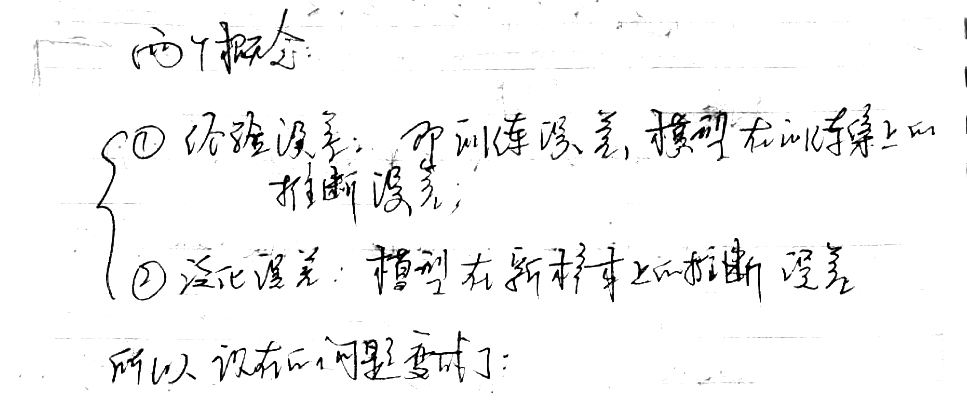 两个概念:
① 经验误差: 即训练误差, 模型在训练集上的
推断误差;
② 泛化误差: 模型在新样本上的推断误差
所以现在的问题变成了: